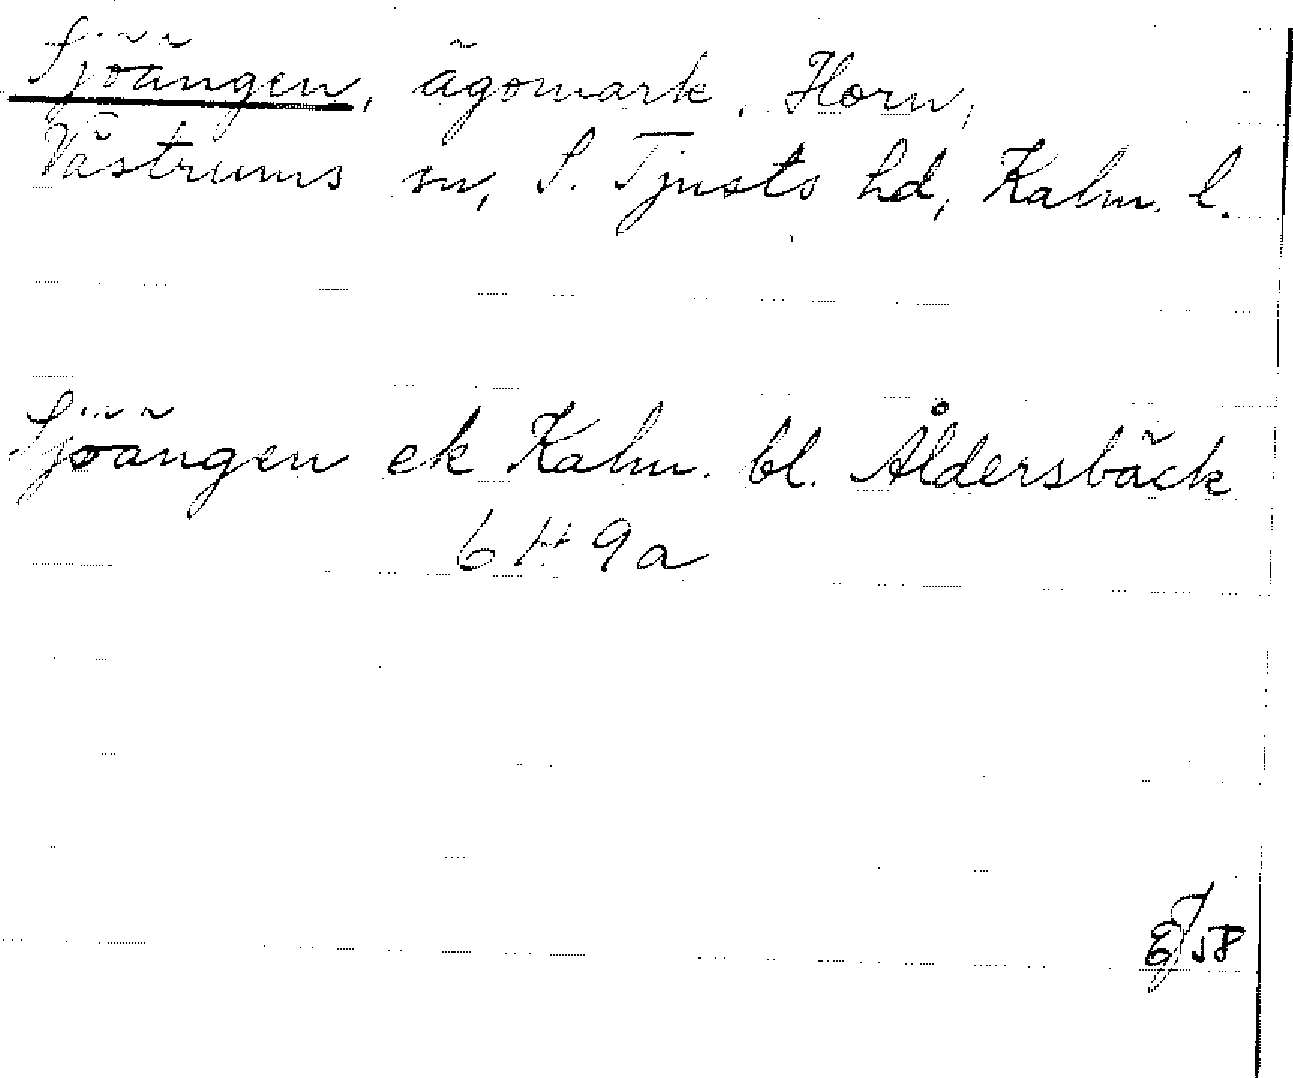 Sjöängen, ägomark, Horn,
Västrums sn, S. Tjusts hd, Kalm. l.
Sjöängen ek Kalm. bl. Åldersbäck
6 H 9a